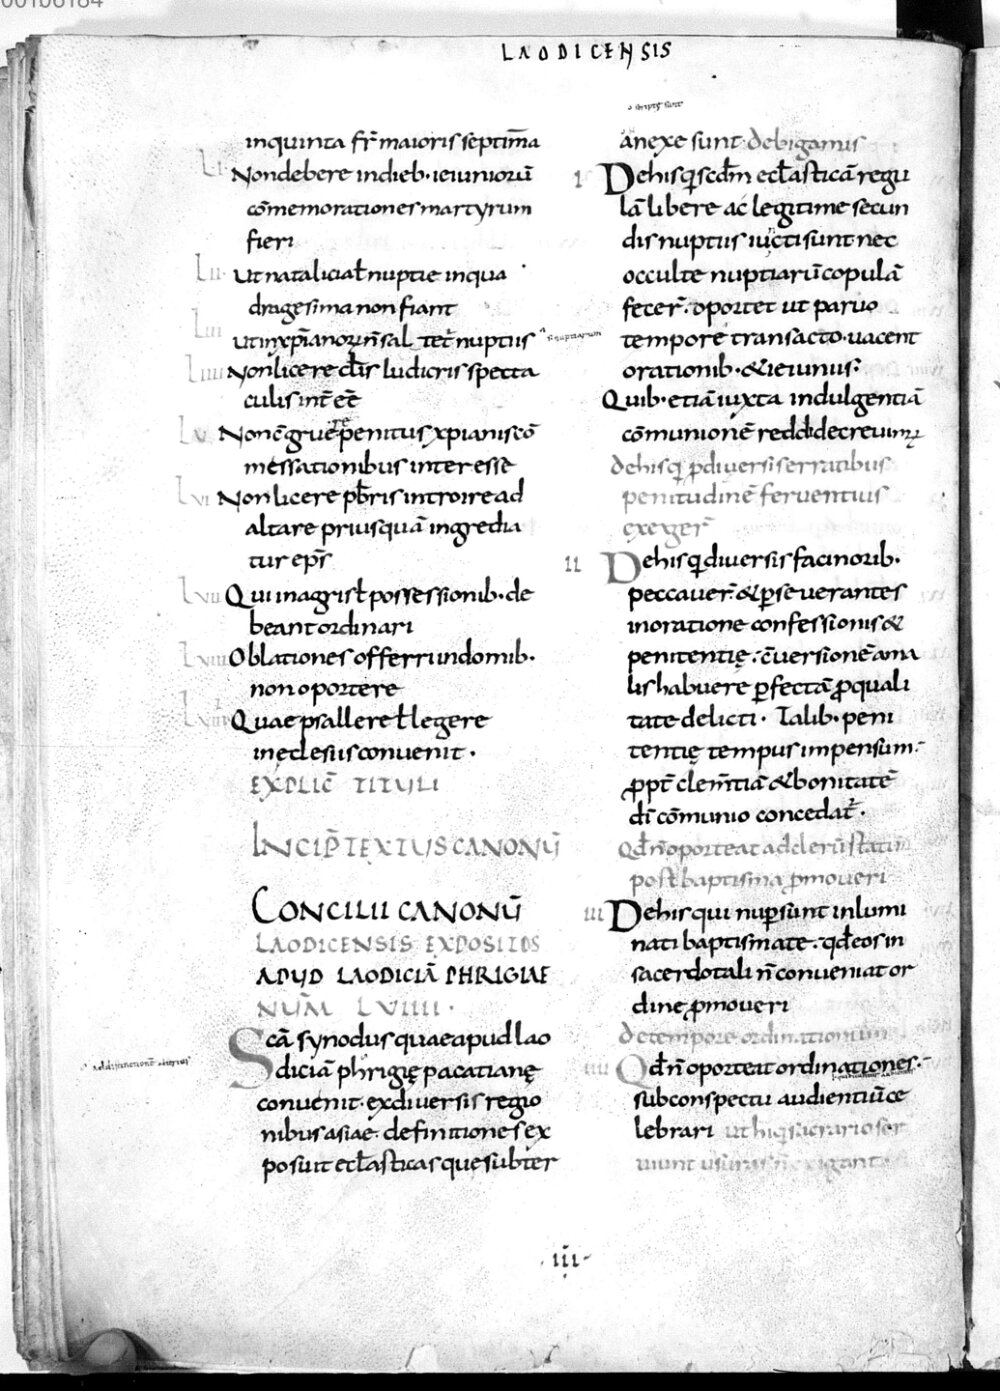 LAODICENSIS
inquinta fr̄ maioris septim̄a
LI Nondebere indieb· ieiuniorū
cōmemorationes martyrum
fieri
LII Ut natalicia ł nuptie inqua
dragesima non fiant
LIII
nuptiis
LIIII Non licere cl̄is ludicris specta
culis int̄ eē
LV penitus xpianis cō
messationibus interesse
LVI Non licere pb̄ris introire ad
altare priusquā ingredia
tur ep̄s
LVII Qui inagris ł possessionib· de
beant ordinari
LVIII Oblationes offerri indomib·
non oportere
LVIIII Quae psallere ł legere
inęclesiis convenit·
EXPLIC̄ TITULI
INCIP̄ TEXTUS CANONŪ
CONCILII CANONŪ
LAODICENSIS EXPOSITOS
APUD LAODICIĀ PHRIGIAE
NUM̄ LVIIII·
Scā synodus quae apud lao
diciā phrigię pacatianę
convenit· exdiversis regio
nibus asiae· definitiones ex
posuit ecl̄asticas que subter
anexe sunt· de bigamis
I De his q̄ scd̄m ecl̄asticā regu
lā libere ac legitime secun
dis nuptiis iūcti sunt nec
occulte nuptiarū copulā
fecer̄· oportet ut parvo
tempore transacto· vacent
orationib· & ieiuniis·
Quib· etiā iuxta indulgentiā
cōmunionē reddi decrevim;
de his q̄ p̄ diversis erratibus
penitudinē ferventius
exeger̄
II De his q̄ diversis facinorib·
peccaver̄· & pseverantes
inoratione confessionis &
penitentię· cūersionē ama
lis habuere pfectā p̄ quali
tate delicti· Talib· peni
tentię tempus impensum·
p̄pt̄ clem̄tiā & bonitatē
dī cōmunio concedat̄·
Qd̄ n̄ oporteat ad clerū statim
post baptisma p̄moveri
III De his qui nup sunt inlumi
nati baptismate· qd̄ eos in
sacerdotali n̄ conveniat or
dine p̄moveri
de tempore ordinationum
IIII Qd̄ n̄ oporteat ordinationes
sub conspectu audientiū ce
lebrari ut hi q̄ sacrario ser
viunt usuras n̄ exigant
·III·